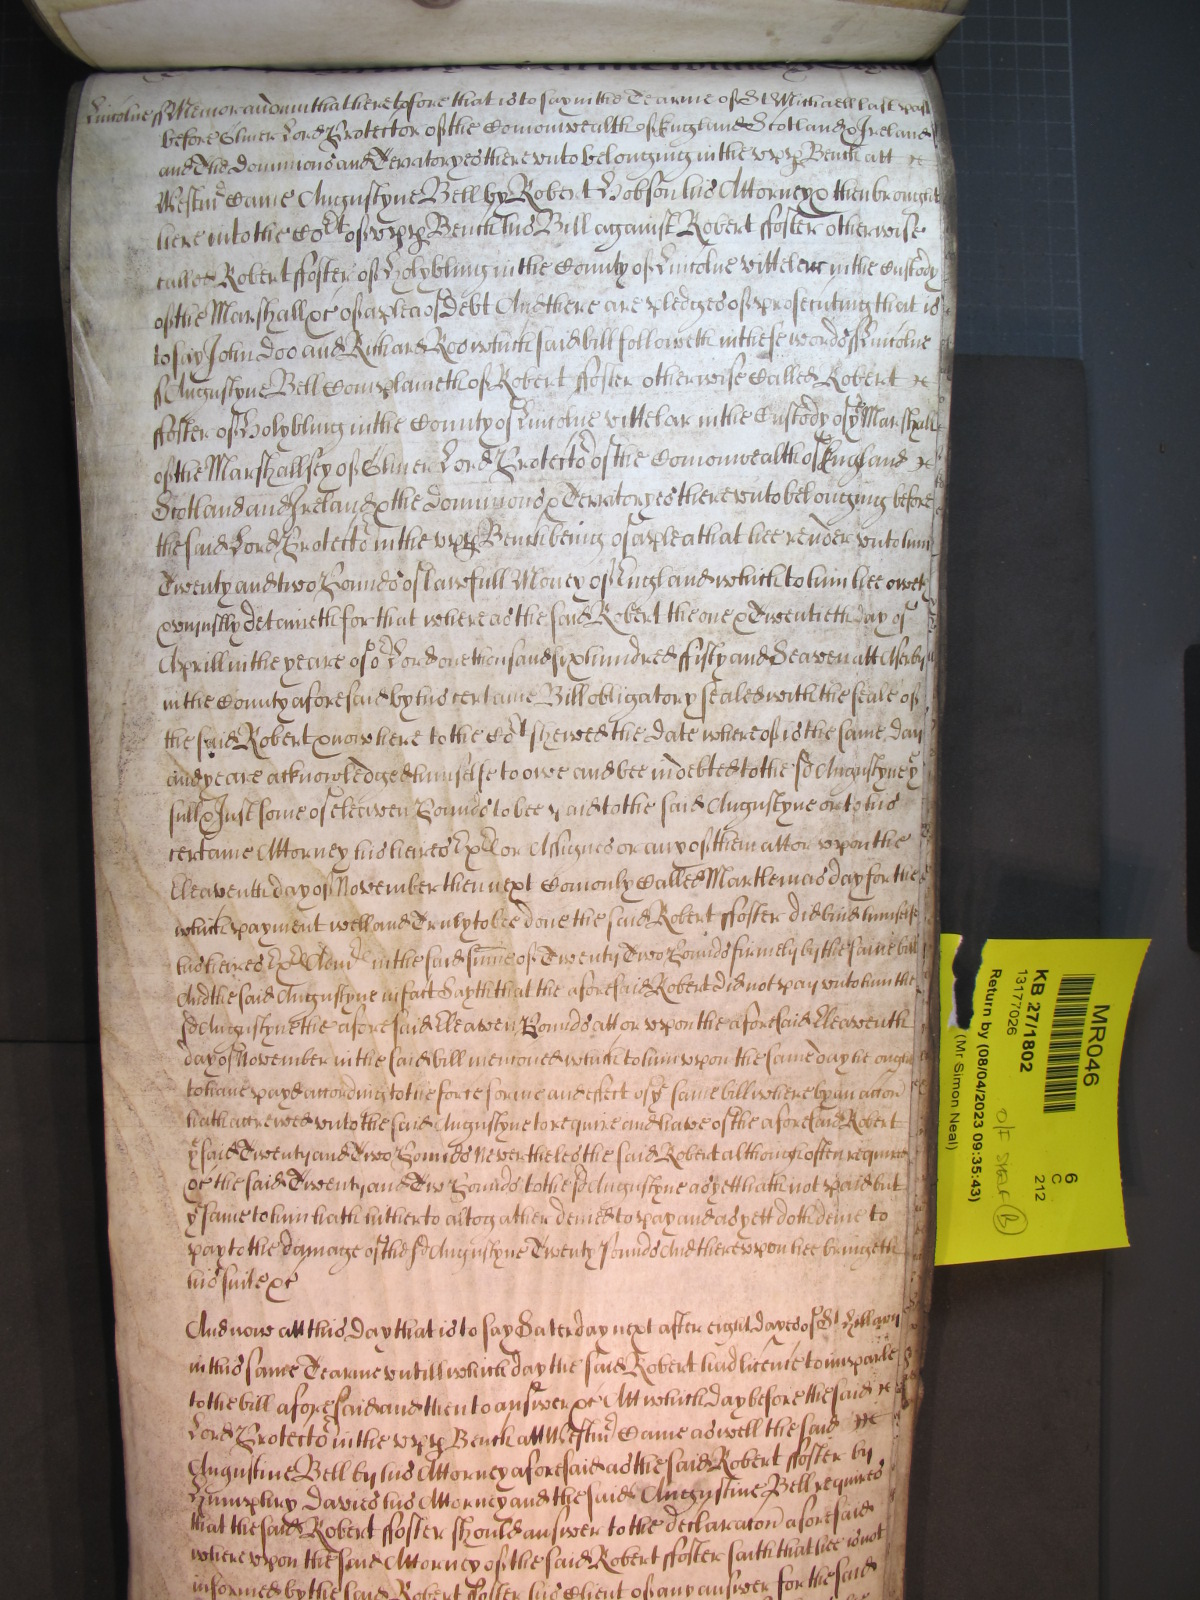 Lincolne ss Memorandum that heretofore that is to say in the Tearme of St Michaell last past
before Oliver Lord Protector of the Comonwealth of England Scotland & Ireland
and The Dominions and Territoryes there unto belonging in the upp Bench att
Westmr Came Augustyne Bell by Robert Hobson his Attorney & then brought
here into the Cort of upp Bench his Bill against Robert ffoster otherwise
called Robert ffoster of Holybling in the County of Lincolne vitteler in the Custody
of the Marshall &c of a plea of Debt And there are pledges of prosecuting that is
to say John Doo and Richard Roo which said bill followeth in these words ss Lincolne
ss Augustyne Bell Complaineth of Robert ffoster otherwise Called Robert
ffoster of Holybling in the County of Lincolne vittelar in the Custody of ye Marshall
of the Marshallsey of Oliver Lord Protector of the Comonwealth of England
Scotland and Ireland & the Dominions & Territoryes there unto belonging before
the said Lord Protector in the upp Bench being of a plea that hee render unto him
Twenty and two Pounds of lawfull Money of England which to him hee oweth
& uniustly detaineth for that whereas the said Robert the one & Twentieth day of
Aprill in the yeare of or Lord one thousand six hundred ffifty and Seaven att
in the County aforesaid by his certaine Bill obligatory sealed with the seale of
the said Robert & now here to the Cort shewed the Date whereof is the same day
and yeare acknowledged himselfe to owe and bee indebted to the sd Augustyne ye
full & Just some of eleaven Pounds to bee paid to the said Augustyne or to his
certaine Attorney his heires Exrs or Assignes or any of them att or upon the
Eleaventh day of November then next Comonly Called Martlemas day for the
which payment well and Truly to bee done the said Robert ffoster did bind himselfe
his heires Exrs Admrs in the said summe of Twenty Two Pounds firmely by the same bill
And the said Augustyne in fact Sayth that the aforesaid Robert did not pay unto him the
sd Augustyne the aforesaid Eleaven Pounds att or upon the aforesaid Eleaventh
day of November in the said bill menconed which to him upon the same day he ought
to have payd according to the force forme and effect of ye same bill whereby an accon
hath accrewed unto the said Augustyne to require and have of the aforesaid Robert
ye said Twenty and Two Pounds Neverthelesse the said Robert although often required
&c the said Twenty and Two Pounds to the sd Augustyne as yett hath not paid but
ye same to him hath hitherto altogather denied to pay and as yett doth denie to
pay to the damage of the sd Augustyne Twenty pounds And thereupon hee bringeth
his suite &c
And now att this Day that is to say Saterday next after eight dayes of St Hillary
in this same Tearme untill which day the said Robert had licence to imparle
to the bill aforesaid and then to answer &c Att which day before the said
Lord Protector in the upp Bench att Westmr Came aswell the said
Augustine Bell by his Attorney aforesaid as the said Robert ffoster by
Humphry Davies his Attorney and the said Augustine Bell requires
that the said Robert ffoster should answer to the declaracon aforesaid
whereupon the said Attorney of the said Robert ffoster saith that hee is not
informed by the said Robert ffoster his Client of any answer for the said
MR046
6
C
212
KB 27/1802
13177026
O/F Staff B
Return by (08/04/2023 09:35:43)
(Mr Simon Neal)